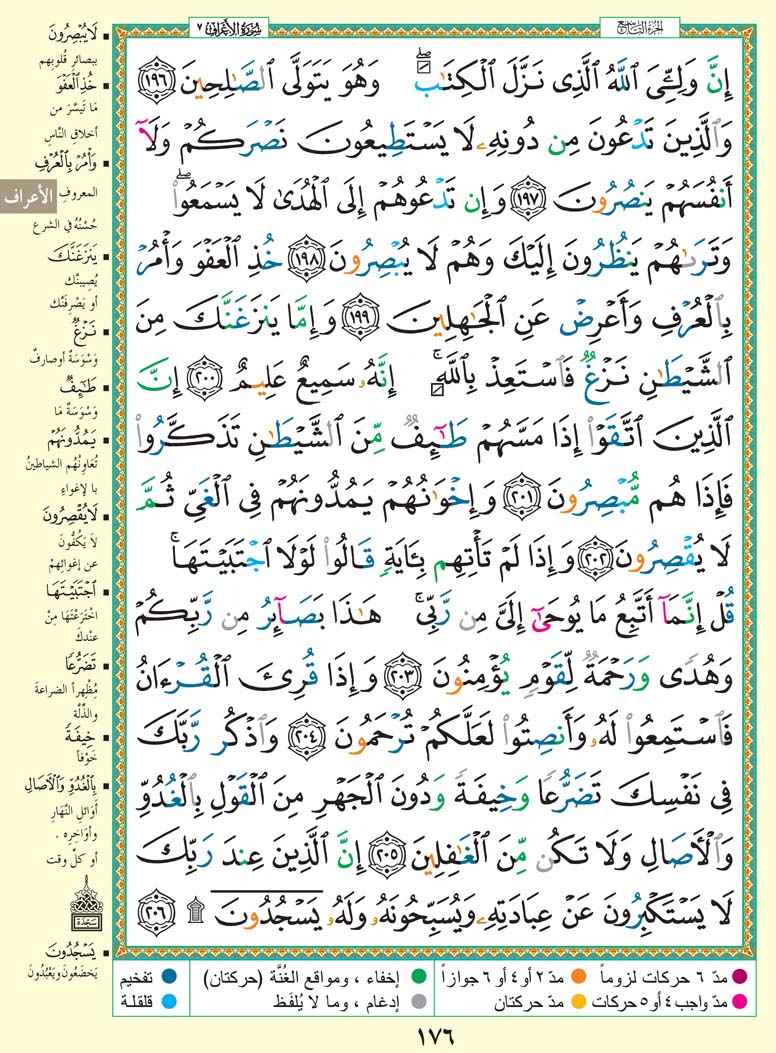 الجزء التاسع
سورة الأعراف ٧
إِنَّ وَلِـِّۧىَ ٱللَّهُ ٱلَّذِى نَزَّلَ ٱلْكِتَـٰبَ ۖ وَهُوَ يَتَوَلَّى ٱلصَّـٰلِحِينَ ١٩٦
وَٱلَّذِينَ تَدْعُونَ مِن دُونِهِۦ لَا يَسْتَطِيعُونَ نَصْرَكُمْ وَلَآ
أَنفُسَهُمْ يَنصُرُونَ ١٩٧ وَإِن تَدْعُوهُمْ إِلَى ٱلْهُدَىٰ لَا يَسْمَعُوا۟ ۖ
وَتَرَىٰهُمْ يَنظُرُونَ إِلَيْكَ وَهُمْ لَا يُبْصِرُونَ ١٩٨ خُذِ ٱلْعَفْوَ وَأْمُرْ
بِٱلْعُرْفِ وَأَعْرِضْ عَنِ ٱلْجَـٰهِلِينَ ١٩٩ وَإِمَّا يَنزَغَنَّكَ مِنَ
ٱلشَّيْطَـٰنِ نَزْغٌ فَٱسْتَعِذْ بِٱللَّهِ ۚ إِنَّهُۥ سَمِيعٌ عَلِيمٌ ٢٠٠ إِنَّ
ٱلَّذِينَ ٱتَّقَوْا۟ إِذَا مَسَّهُمْ طَـٰٓئِفٌ مِّنَ ٱلشَّيْطَـٰنِ تَذَكَّرُوا۟
فَإِذَا هُم مُّبْصِرُونَ ٢٠١ وَإِخْوَٰنُهُمْ يَمُدُّونَهُمْ فِى ٱلْغَىِّ ثُمَّ
لَا يُقْصِرُونَ ٢٠٢ وَإِذَا لَمْ تَأْتِهِم بِـَٔايَةٍ قَالُوا۟ لَوْلَا ٱجْتَبَيْتَهَا ۚ
قُلْ إِنَّمَآ أَتَّبِعُ مَا يُوحَىٰٓ إِلَىَّ مِن رَّبِّى ۚ هَـٰذَا بَصَآئِرُ مِن رَّبِّكُمْ
وَهُدًى وَرَحْمَةٌ لِّقَوْمٍ يُؤْمِنُونَ ٢٠٣ وَإِذَا قُرِئَ ٱلْقُرْءَانُ
فَٱسْتَمِعُوا۟ لَهُۥ وَأَنصِتُوا۟ لَعَلَّكُمْ تُرْحَمُونَ ٢٠٤ وَٱذْكُر رَّبَّكَ
فِى نَفْسِكَ تَضَرُّعًا وَخِيفَةً وَدُونَ ٱلْجَهْرِ مِنَ ٱلْقَوْلِ بِٱلْغُدُوِّ
وَٱلْـَٔاصَالِ وَلَا تَكُن مِّنَ ٱلْغَـٰفِلِينَ ٢٠٥ إِنَّ ٱلَّذِينَ عِندَ رَبِّكَ
لَا يَسْتَكْبِرُونَ عَنْ عِبَادَتِهِۦ وَيُسَبِّحُونَهُۥ وَلَهُۥ يَسْجُدُونَ ۩ ٢٠٦
لَا يُبْصِرُونَ
ببصائر قُلوبهم
خُذِ الْعَفْوَ
مَا تَيَسَّرَ من
أخلاق النَّاسِ
وَأْمُرْ بِالْعُرْفِ
المعروفِ
حُسْنُهُ في الشرع
الأعراف
يَنزَغَنَّكَ
يُصيبنَّك
أو يَصْرِفَنَّك
نَزْغٌ
وَسْوَسَةٌ أوصارفٌ
طَـٰٓئِفٌ
وَسْوَسَةٌ مَا
يَمُدُّونَهُمْ
تُعَاوِنُهُم الشياطينُ
بالإغواءِ
لَا يُقْصِرُونَ
لاَ يَكُفُّونَ
عن إغوائِهمْ
ٱجْتَبَيْتَهَا
اخْتَرَعْتَهَا مِنْ
عندكَ
تَضَرُّعًا
مُظْهِراً الضراعةَ
والذِّلَّة
خِيفَةً
خَوْفاً
بِالْغُدُوِّ وَالْآصَالِ
أَوَائلِ النَّهَارِ
وأوَاخِرِه .
أو كلَّ وقت
سَجْدَة
يَسْجُدُونَ
يَخضَعُونَ وَيَعْبُدُونَ
مدّ ٦ حركات لزوماً
مدّ ٢ أو ٤ أو ٦ جوازاً
إخفاء ، ومواقع الغُنَّة (حركتان)
تفخيم
مدّ واجب ٤ أو ٥ حركات
مدّ حركتان
إدغام ، وما لا يُلفَظ
قلقلة
١٧٦